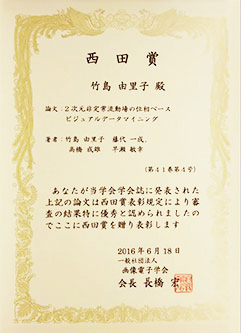 西田賞
竹島 由里子 殿
論文：2次元非定常流動場の位相ベース
ビジュアルデータマイニング
著者：竹島 由里子 藤代 一成、
高橋 成雄 早瀬 敏幸
(第41巻第4号)
あなたが当学会学会誌に発表された
上記の論文は西田賞表彰規定により審
査の結果特に優秀と認められましたの
でここに西田賞を贈り表彰します
2016年6月18日
一般社団法人
画像電子学会
会長 長橋 宏